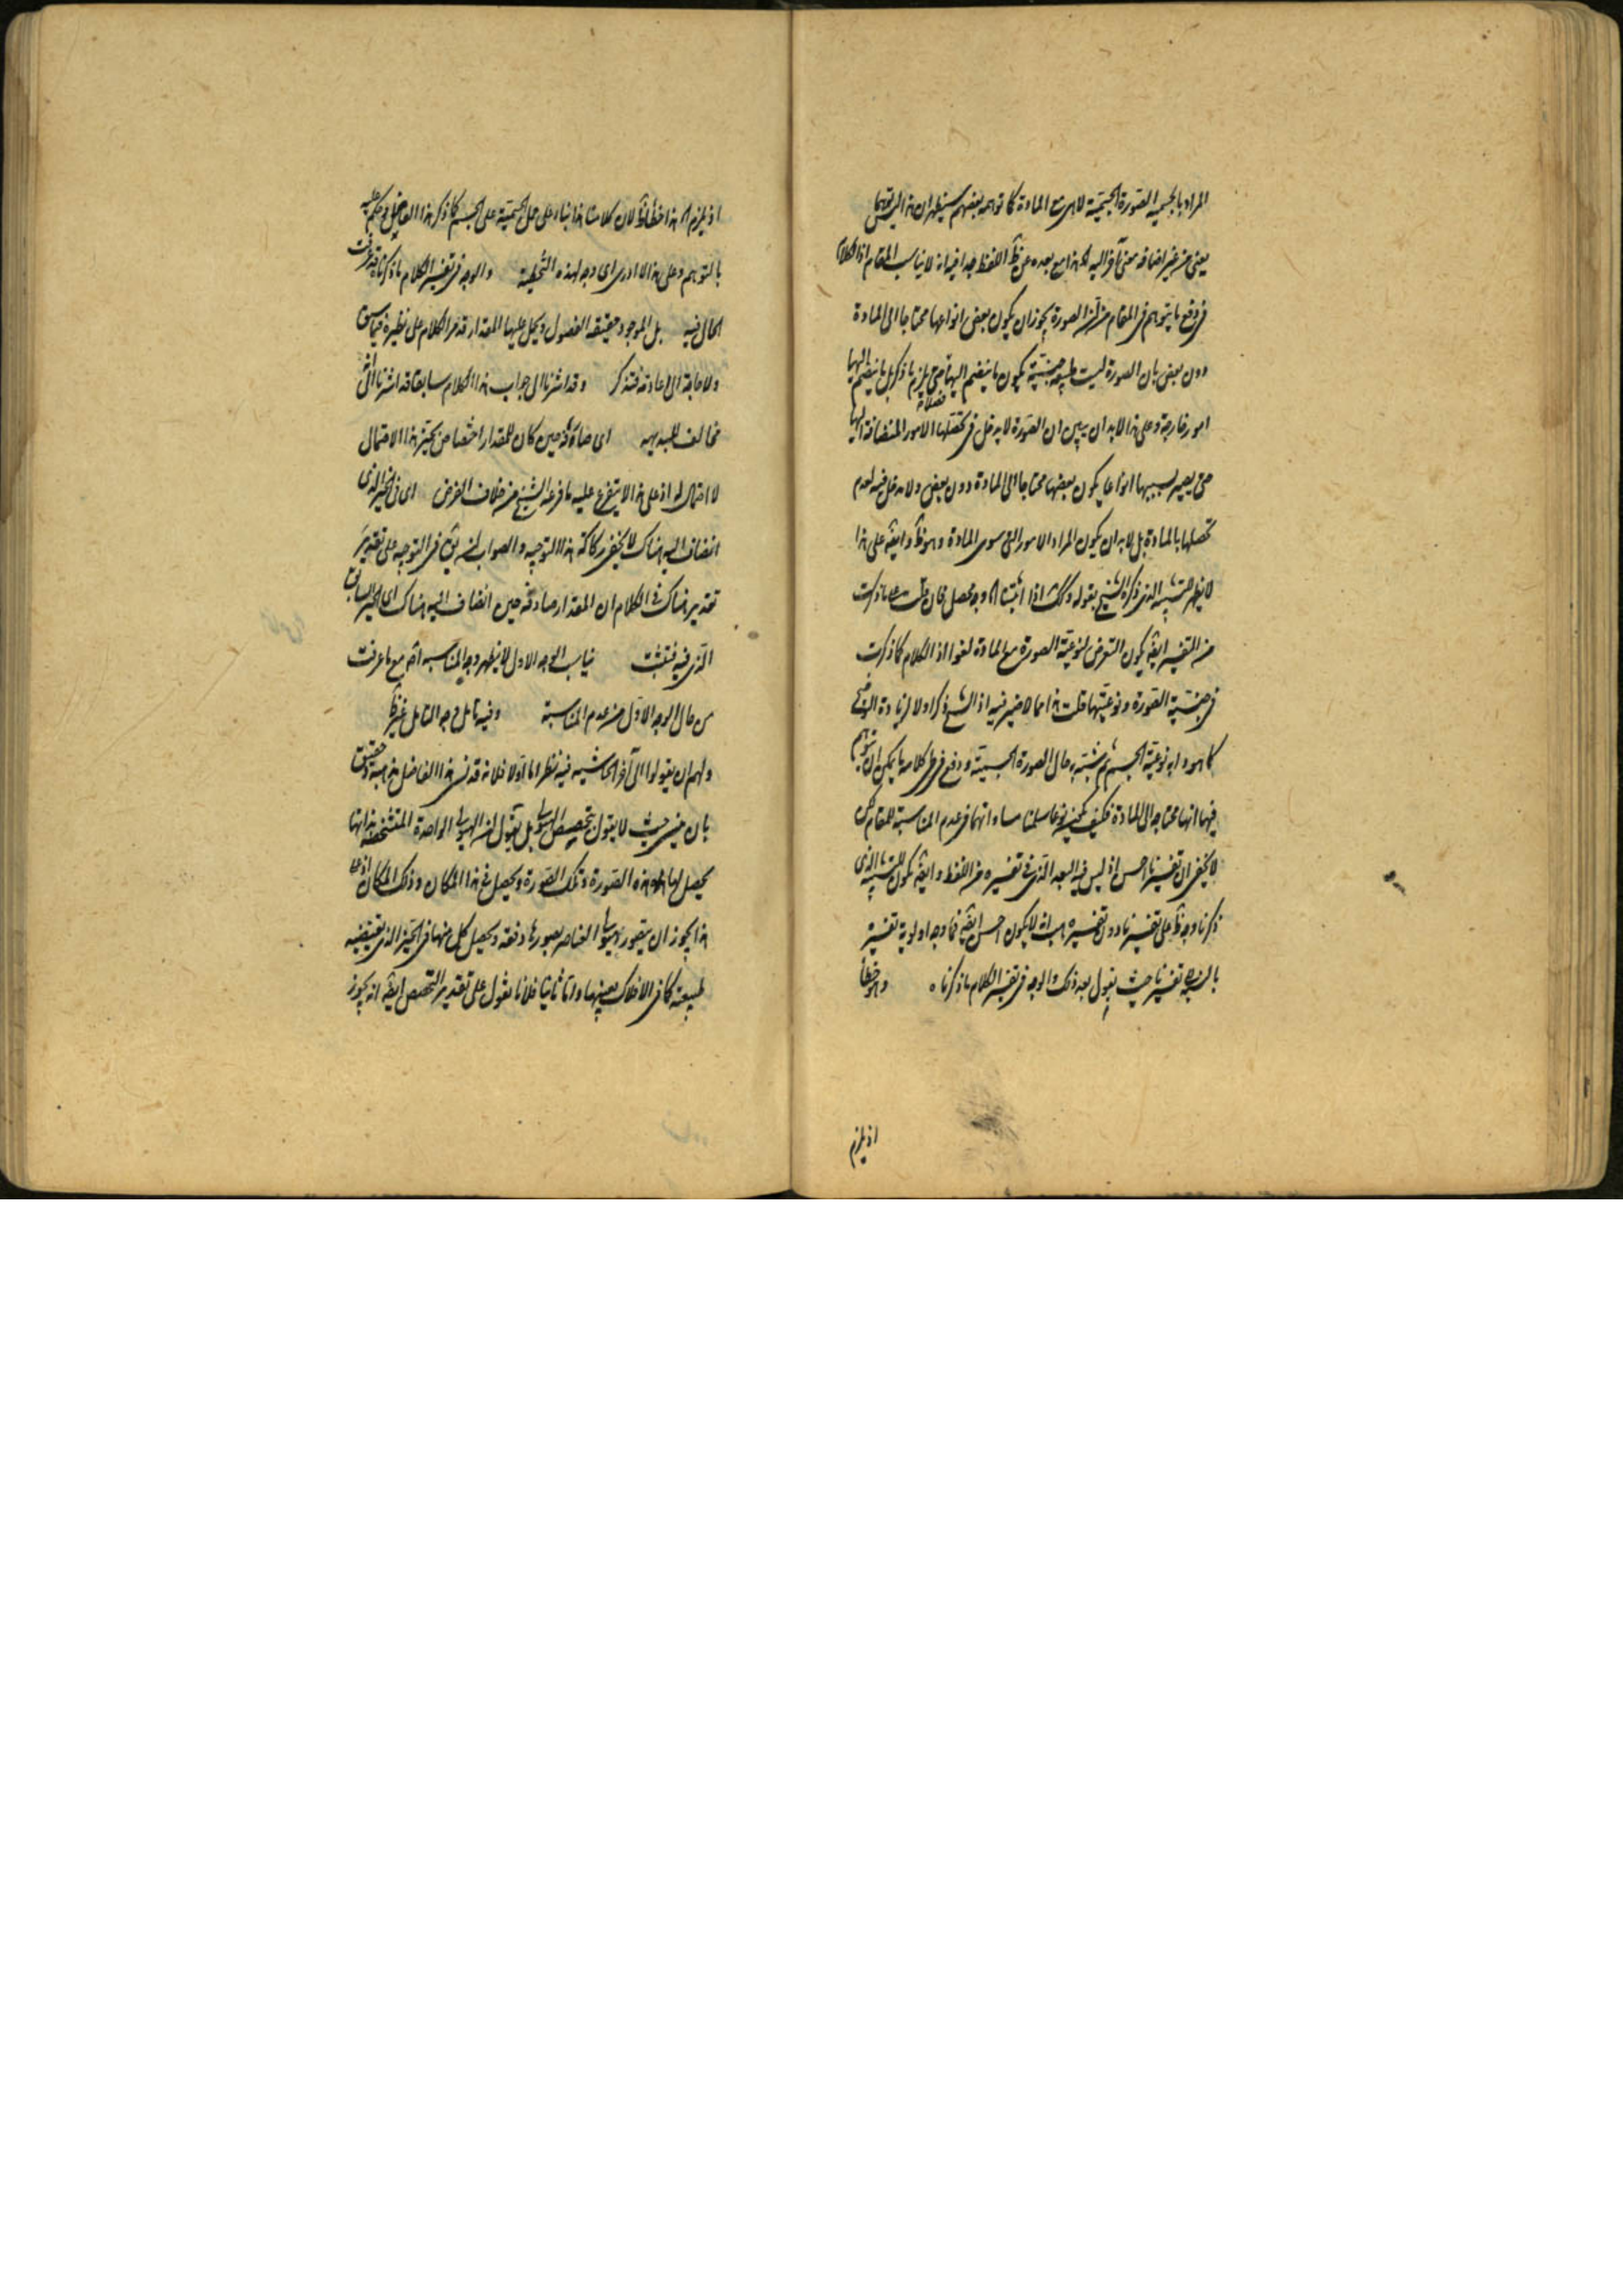 المراد بالجسمية الصورة الجسمية لا هى مع المادة كما توهمه بعضهم سيظهر ان هذا ليس توهما
يعنى من غير اضافة معنى آخر اليه هذا مع بعده عن اللفظ جدا فيه انه لا يناسب المقام اذ الكلام
فى دفع ما يتوهم فى المقام من ان الصورة يجوز ان يكون بعض انواعها محتاجا الى المادة
دون بعض بان الصورة ليست طبيعة جنسية يكون ما ينضم اليها حتى يلزم ما ذكر بل ما ينضم اليها
امور خارجة وعلى هذا لا بد ان يبين ان الصورة لا يدخل فى تحصلها الامور المنضافة اليها
حتى يصير بسببها انواعا يكون بعضها محتاجا الى المادة دون بعض ولا مدخل فيه لعدم
تحصلها بالمادة بل لا بد ان يكون المراد الامور التى سوى المادة وهو ظ وايضه على هذا
لا يظهر الذى ذكره الشيخ بقوله اذا وجه محصل فان قلت ما ذكرت
من التفسير ايضه يكون التعرض لنوعية الصورة مع المادة لغوا اذ الكلام كما ذكرت
فى جنسية الصورة ونوعيتها قلت هذا مما لا ضير فيه اذ الشيخ ذكر اولا لزيادة التوضيح
كما هو دابه نوعية الجسم ثم شبه به حال الصورة الجسمية ودفع فى طى كلامه ما يمكن ان يتوهم
فيها انها محتاجة الى المادة فكيف يكون نوعا سلمنا مساواتهما فى عدم المناسبة للمقام لكن
لا يخفى ان تفسيرنا احسن اذ ليس فيه البعد الذى فى تفسيره من اللفظ وايضه يكون للتشبيه الذى
ذكرنا وجه ظ على تفسيرنا دون تفسيره هب انه لا يكون احسن ايضه فما وجه اولوية تفسيره
بالنسبة تفسيرنا حيث يقول بعد ذلك والوجه فى تفسير الكلام ما ذكرناه وهو خطأ
اذ يلزم
اذ يلزم هذا خطأ لان كلامنا هذا بناء على حمل الجسمية على الجسم كما ذكر هذا الفاضل وحكم عليه
بالتوهم وعلى هذا لا ادرى اى وجه لهذه التخطية والوجه فى تفسير الكلام ما ذكرناه قد عرفت
الحال فيه بل الموجود حقيقة الفصول ويحمل عليها المقدار قد مر الكلام على نظيره فيما سبق
ولا حاجة الى اعادته فتذكر وقد اشرنا الى جواب هذا الكلام سابقا قد اشرنا الى
مخالف للبديهه اى صادفه حين كان للمقدار اختصاص بحيز هذا الاحتمال
لا احتمال له اذ على هذا لا يتفرع عليه ما فرعه الشيخ من خلاف الفرض اى فى الحيز الذى
انضاف اليه هناك لا يخفى ركاكة هذا التوجيه والصواب ان يق فى التوجيه على تقدير
تقدير هناك فى الكلام ان المقدار صادفه حين انضاف اليه هناك اى الحيز السابق
الذى فيه فتثبت يناسب الوجه الاول لا يظهر وجه المناسبه اه مع ما عرفت
من حال الوجه الاول من عدم المناسبة وفيه تامل وجه التامل غير ظ
ولهم ان يقولوا الى آخر الحاشيه فيه نظر اما اولا فلانه قد نسى هذا الفاضل
بان حيث لا يقول بتخصيص الهيولى بل يقول ان الهيولى الواحدة المتشخصة بذاتها
يحصل لها هذه الصورة وتلك الصورة ويحصل فى هذا المكان وذلك المكان اذ على
هذا يجوز ان يتصور هيولى العناصر بصورها دفعة ويحصل كل منها فى الحيز الذى يقتضيه
طبيعته كما فى الافلاك بعينها واما ثانيا فلانا نقول على تقدير التخصص ايضه انه يجوز